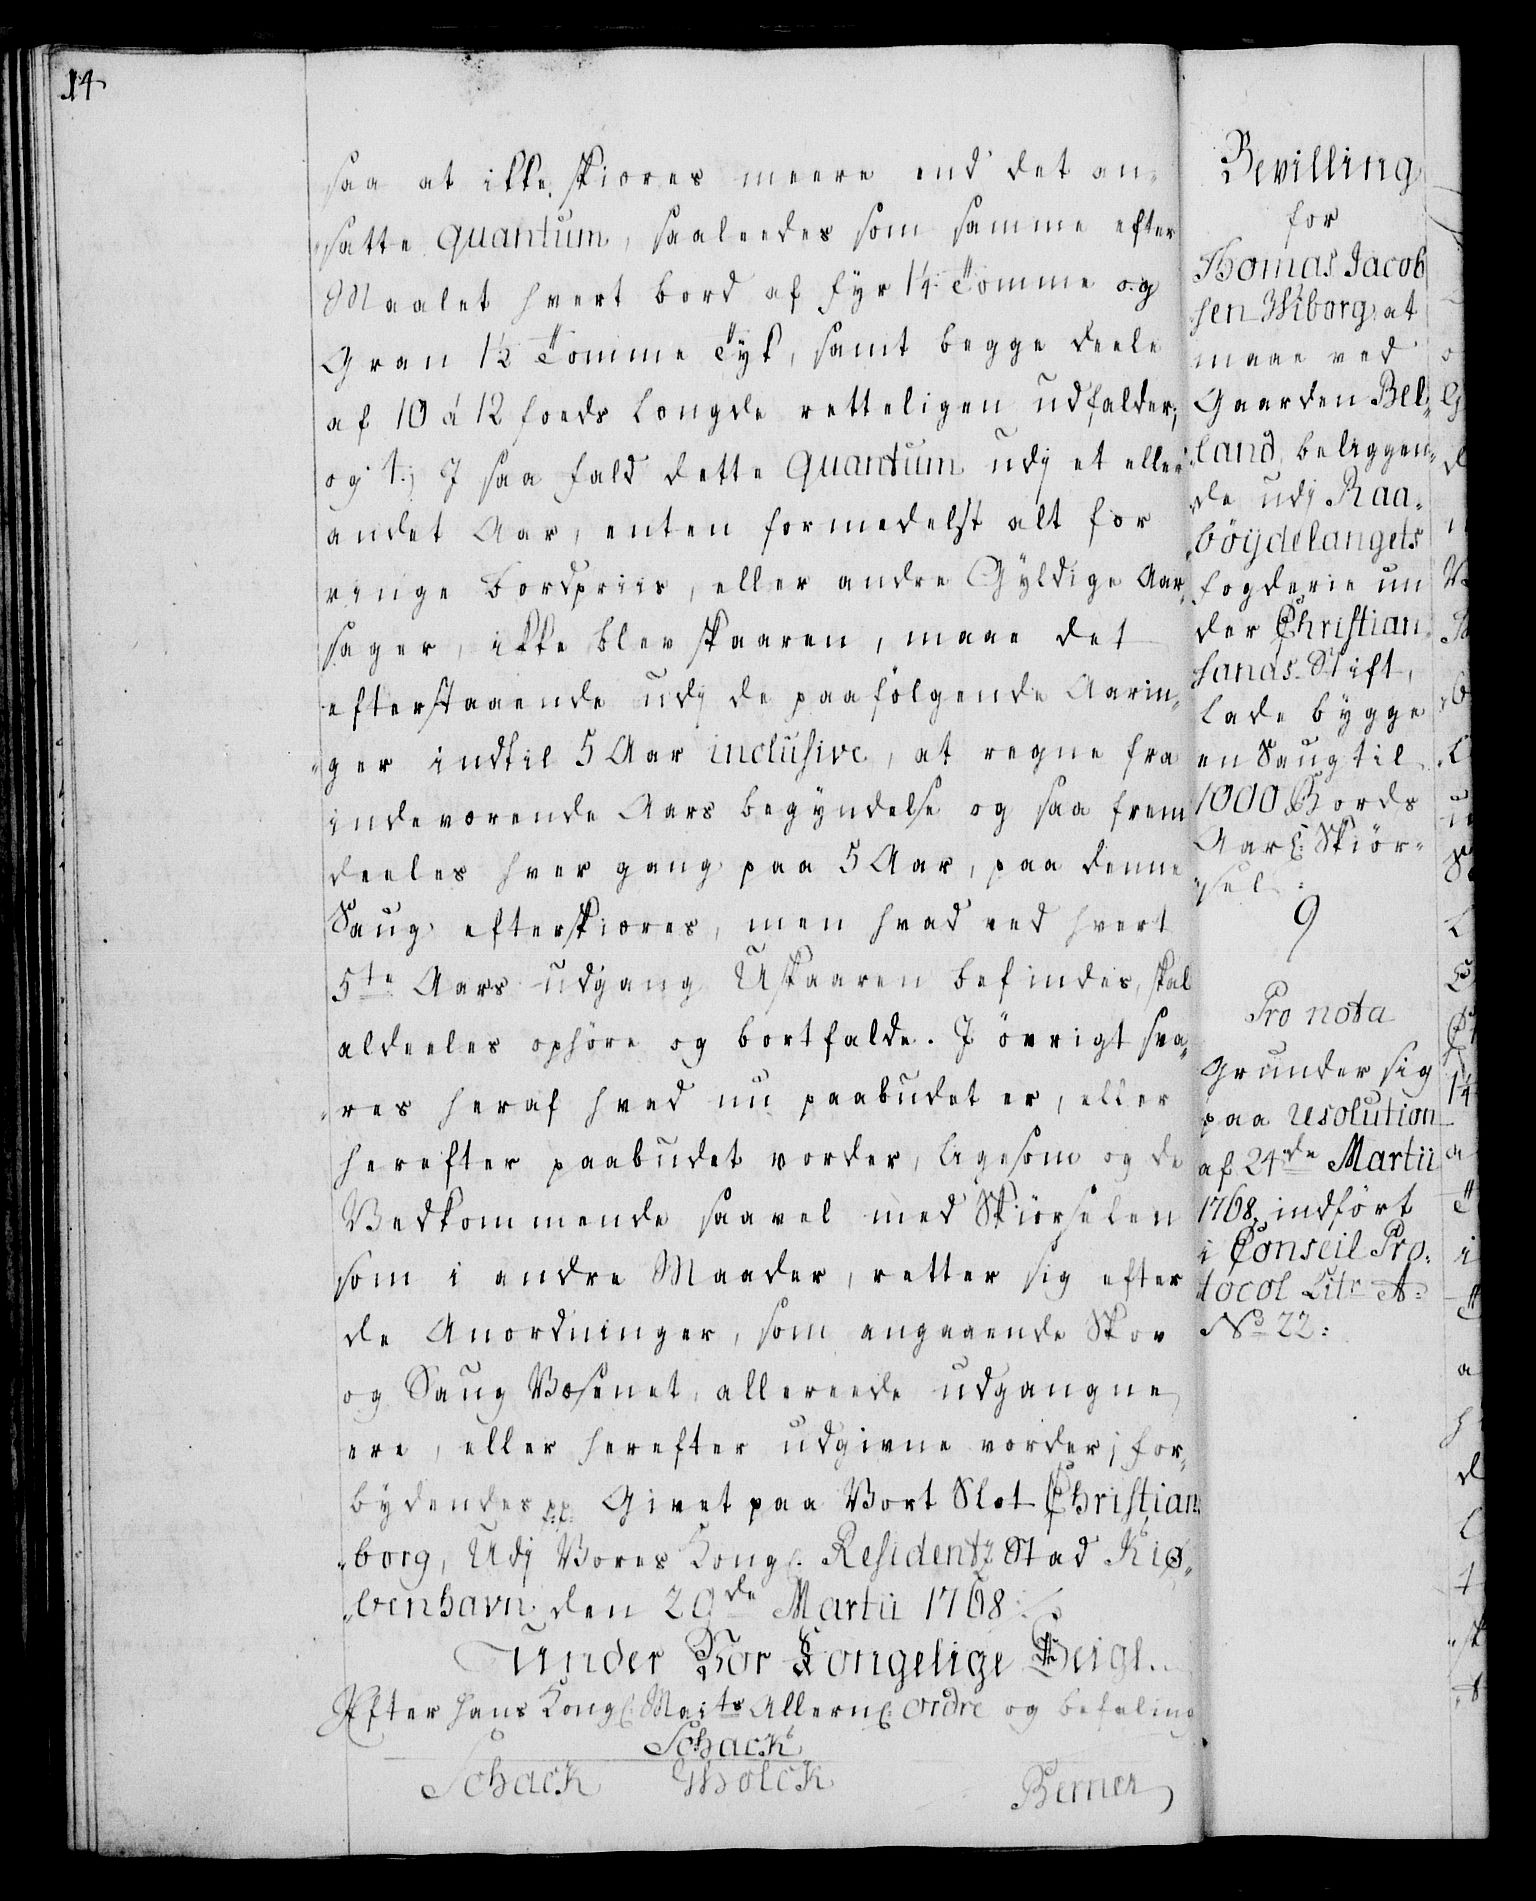 14
saa at ikke skiæres meere end det an-
satte quantum, saaleedes som samme efter
Maalet hvert bord af fyr 1¼ Tomme og
Gran 1½ Tomme Tyk, samt begge deele
af 10 á 12 foeds Længde retteligen udfalder;
og 4.) I saa fald dette quantum udj et eller
andet Aar, enten formedelst alt for
ringe bordpriis, eller andre Gyldige Aar-
sager, ikke blev skaaren, maae det
efterstaaende udj de paafölgende Aarin-
ger indtil 5 Aar inclusive, at regne fra
indeværende Aars begyndelse og saa frem
deeles hver gang paa 5 Aar, paa denne
Saug efterskiæres, men hvad ved hvert
5te Aars udgang Uskaaren befindes, skal
aldeeles ophöre og bortfalde. I övrigt sva-
res heraf hvad nu paabudet er, eller
herefter paabudet vorder, ligesom og de
Vedkommende saavel med Skiørselen
som i andre Maader, retter sig efter
de Anordninger, som angaaende Skov
og Saug Væsenet, allereede udgangne
ere, eller herefter udgivne vorder; for-
bydendes pp. Givet paa Vort Slot Christian-
borg, Udj Vores Kongl. Residentz Stad Kiø-
benhavn den 29de Martii 1768
under Vor Kongelige Seigl.
Efter Hans Kongl: Maits Allern: ordre og befaling
Schack
Schack Gholck Berner
Bevilling
for
Thomas Jacob
sen Wiborg at
maae ved
Gaarden Bel-
land, beliggen-
de udj Raa-
böijdelangets
fogderie un
der Christian
sands Stift,
lade bygge
en Saug til
1000 Bords
Aarl: Skiör-
sel:
9
Pro nota
grunder sig
paa resolution
af 24de Martii
1768, indført
i Conseil Pro-
tocol Litr A:
No 22: